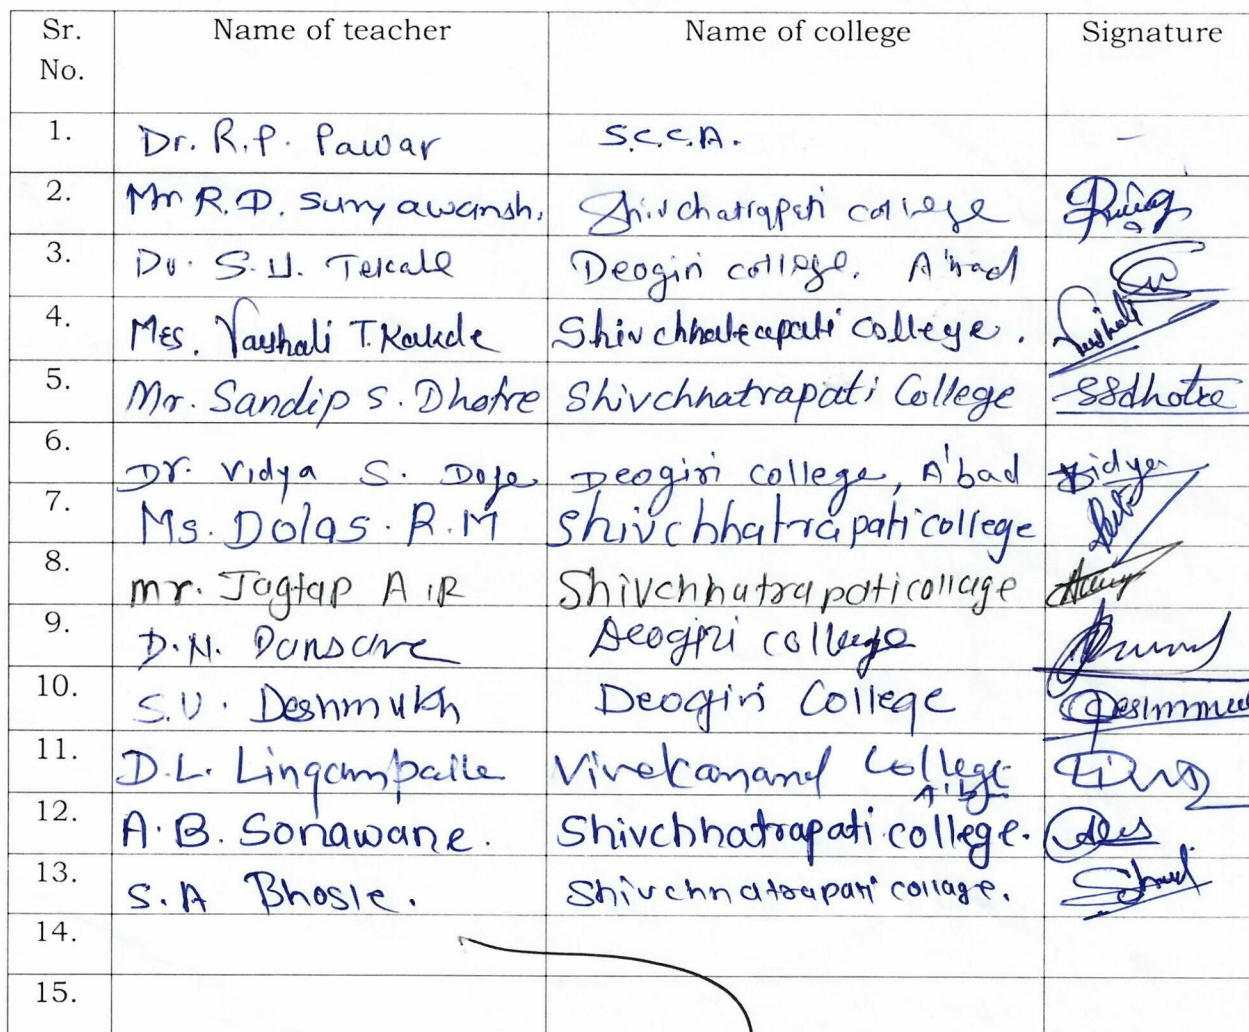 Sr. No. Name of teacher Name of college Signature
1. Dr. R.P. Pawar S.C.C.A. -
2. Mr R.D. Suryawanshi Shivchatrapati college
3. Dr. S.U. Tekale Deogiri college, A'bad
4. Mrs. Vaishali T. Kakde Shivchhatrapati College. Vaishali
5. Mr. Sandip S. Dhotre Shivchhatrapati College SSdhotre
6. Dr. Vidya S. Deogiri college, A'bad Vidya
7. Ms. Dolas. R.M Shivchhatrapati college
8. mr. Jagtap A.R Shivchhatrapati collage
9. D.N. Deogiri college
10. S.V. Deshmukh Deogiri College
11. D.L. Vivekanand College A'bad
12. A.B. Sonawane. Shivchhatrapati college.
13. S.A Bhosle. Shivchhatrapati collage.
14.
15.